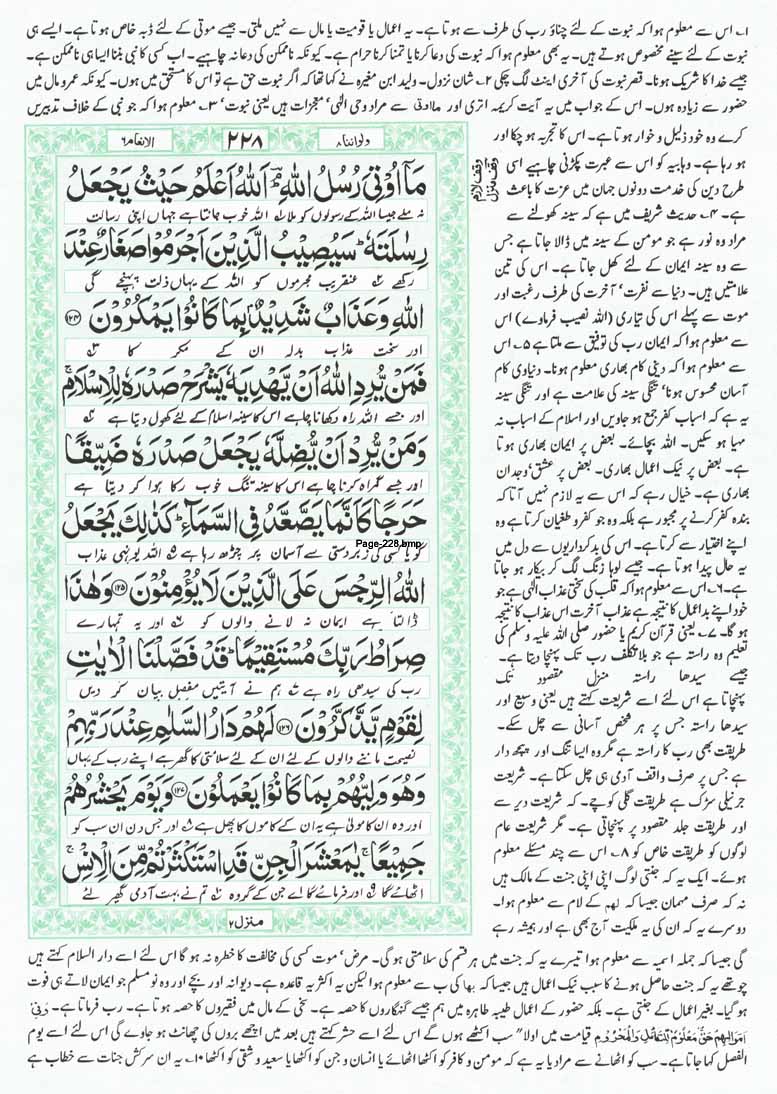 ۱۔ اس سے معلوم ہوا کہ نبوت کے لئے چناؤ رب کی طرف سے ہوتا ہے۔ یہ اعمال یا قومیت یا مال سے نہیں ملتی۔ جیسے موتی کے لئے ڈبہ خاص ہوتا ہے۔ ایسے ہی
نبوت کے لئے سینے مخصوص ہوتے ہیں۔ یہ بھی معلوم ہوا کہ نبوت کی دعا کرنا یا تمنا کرنا حرام ہے۔ کیونکہ ناممکن کی دعا نہ چاہیے۔ اب کسی کا نبی بننا ایسا ہی ناممکن ہے۔
جیسے خدا کا شریک ہونا۔ قصر نبوت کی آخری اینٹ لگ چکی ۲۔ شان نزول۔ ولید ابن مغیرہ نے کہا تھا کہ اگر نبوت حق ہے تو اس کا مستحق میں ہوں۔ کیونکہ عمر و مال میں
حضور سے زیادہ ہوں۔ اس کے جواب میں یہ آیت کریمہ اتری اور مااوتی سے مراد وحی الٰہی، معجزات ہیں یعنی نبوت، ۳۔ معلوم ہوا کہ جو نبی کے خلاف تدبیریں
کرے وہ خود ذلیل و خوار ہوتا ہے۔ اس کا تجربہ ہو چکا اور
ہو رہا ہے۔ وہابیہ کو اس سے عبرت پکڑنی چاہیے اسی
طرح دین کی خدمت دونوں جہان میں عزت کا باعث
ہے۔ ۴۔ حدیث شریف میں ہے کہ سینہ کھولنے سے
مراد وہ نور ہے جو مومن کے سینہ میں ڈالا جاتا ہے جس
سے وہ سینہ ایمان کے لئے کھل جاتا ہے۔ اس کی تین
علامتیں ہیں۔ دنیا سے نفرت، آخرت کی طرف رغبت اور
موت سے پہلے اس کی تیاری (اللہ نصیب فرماوے) اس
سے معلوم ہوا کہ ایمان رب کی توفیق سے ملتا ہے ۵۔ اس
سے معلوم ہوا کہ دینی کام بھاری معلوم ہونا۔ دنیاوی کام
آسان محسوس ہونا، تنگی سینہ کی علامت ہے اور تنگی سینہ
یہ ہے کہ اسباب کفر جمع ہو جاویں اور اسلام کے اسباب نہ
مہیا ہو سکیں۔ اللہ بچائے۔ بعض پر ایمان بھاری ہوتا
ہے۔ بعض پر نیک اعمال بھاری۔ بعض پر عشق، وجدان
بھاری ہے۔ خیال رہے کہ اس سے یہ لازم نہیں آتا کہ
بندہ کفر کرنے پر مجبور ہے بلکہ وہ جو کفر و طغیان کرتا ہے وہ
اپنے اختیار سے کرتا ہے۔ اس کی بدکرداریوں سے دل میں
یہ حال پیدا ہوتا ہے۔ جیسے لوہا زنگ لگ کر بیکار ہو جاتا
ہے۔ ۶۔ اس سے معلوم ہوا کہ قلب کی سختی عذاب الٰہی ہے جو
خود اپنے بد اعمال کا نتیجہ ہے عذاب آخرت اس عذاب کا نتیجہ
ہو گا۔ ۷۔ یعنی قرآن کریم یا حضور صلی اللہ علیہ وسلم کی
تعلیم وہ راستہ ہے جو بلا تکلف رب تک پہنچا دیتا ہے۔
جیسے سیدھا راستہ منزل مقصود تک
پہنچاتا ہے اس لئے اسے شریعت کہتے ہیں یعنی وسیع اور
سیدھا راستہ جس پر ہر شخص آسانی سے چل سکے۔
طریقت بھی رب کا راستہ ہے مگر وہ ایسا تنگ اور پیچ دار
ہے جس پر صرف واقف آدمی ہی چل سکتا ہے۔ شریعت
جرنیلی سڑک ہے طریقت گلی کوچے۔ کہ شریعت دیر سے
اور طریقت جلد مقصود پر پہنچاتی ہے۔ مگر شریعت عام
لوگوں کو طریقت خاص کو ۸۔ اس سے چند مسئلے معلوم
ہوئے۔ ایک یہ کہ جنتی لوگ اپنی اپنی جنت کے مالک ہیں
نہ کہ صرف مہمان جیسا کہ لھم کے لام سے معلوم ہوا۔
دوسرے یہ کہ ان کی یہ ملکیت آج بھی ہے اور ہمیشہ رہے
وقف لازم
وقف منزل
ولواننا ۸
۲۲۸
الانعام ۶
مَاۤ اُوْتِیَ رُسُلُ اللّٰهِ ؔۘ اَللّٰهُ اَعْلَمُ حَیْثُ یَجْعَلُ
نہ ملے جیسا اللہ کے رسولوں کو ملا اللہ خوب جانتا ہے جہاں اپنی رسالت
رِسٰلَتَهٗ ؕ سَیُصِیْبُ الَّذِیْنَ اَجْرَمُوْا صَغَارٌ عِنْدَ
رکھے عنقریب مجرموں کو اللہ کے یہاں ذلت پہنچے گی
اللّٰهِ وَ عَذَابٌ شَدِیْدٌۢ بِمَا كَانُوْا یَمْكُرُوْنَ ﴿۱۲۴﴾
اور سخت عذاب بدلہ ان کے مکر کا
فَمَنْ یُّرِدِ اللّٰهُ اَنْ یَّهْدِیَهٗ یَشْرَحْ صَدْرَهٗ لِلْاِسْلَامِ ۚ
اور جسے اللہ راہ دکھانا چاہے اس کا سینہ اسلام کے لئے کھول دیتا ہے
وَ مَنْ یُّرِدْ اَنْ یُّضِلَّهٗ یَجْعَلْ صَدْرَهٗ ضَیِّقًا
اور جسے گمراہ کرنا چاہے اس کا سینہ تنگ خوب رکا ہوا کر دیتا ہے
حَرَجًا كَاَنَّمَا یَصَّعَّدُ فِی السَّمَآءِ ؕ كَذٰلِكَ یَجْعَلُ
گویا کسی کی زبردستی سے آسمان پر چڑھ رہا ہے اللہ یونہی عذاب
Page-228.bmp
اللّٰهُ الرِّجْسَ عَلَی الَّذِیْنَ لَا یُؤْمِنُوْنَ ﴿۱۲۵﴾ وَ هٰذَا
ڈالتا ہے ایمان نہ لانے والوں کو اور یہ تمہارے
صِرَاطُ رَبِّكَ مُسْتَقِیْمًا ؕ قَدْ فَصَّلْنَا الْاٰیٰتِ
رب کی سیدھی راہ ہے ہم نے آیتیں مفصل بیان کر دیں
لِقَوْمٍ یَّذَّكَّرُوْنَ ﴿۱۲۶﴾ لَهُمْ دَارُ السَّلٰمِ عِنْدَ رَبِّهِمْ
نصیحت ماننے والوں کے لئے ان کے لئے سلامتی کا گھر ہے اپنے رب کے یہاں
وَ هُوَ وَلِیُّهُمْ بِمَا كَانُوْا یَعْمَلُوْنَ ﴿۱۲۷﴾ وَ یَوْمَ یَحْشُرُهُمْ
اور وہ ان کا مولیٰ ہے یہ ان کے کاموں کا پھل ہے اور جس دن ان سب کو
جَمِیْعًا ۚ یٰمَعْشَرَ الْجِنِّ قَدِ اسْتَكْثَرْتُمْ مِّنَ الْاِنْسِ ۚ
اٹھائے گا اور فرمائے گا اے جن کے گروہ تم نے بہت آدمی گھیر لئے
منزل ۲
گی جیسا کہ جملہ اسمیہ سے معلوم ہوا تیسرے یہ کہ جنت میں ہر قسم کی سلامتی ہو گی۔ مرض، موت کسی کی مخالفت کا خطرہ نہ ہو گا اس لئے اسے دار السلام کہتے ہیں
چوتھے یہ کہ جنت حاصل ہونے کا سبب نیک اعمال ہیں جیسا کہ بما کی ب سے معلوم ہوا لیکن یہ اکثریہ قاعدہ ہے۔ دیوانہ اور بچے اور وہ نو مسلم جو ایمان لاتے ہی فوت
ہو گیا۔ بغیر اعمال کے جنتی ہے۔ بلکہ حضور کے اعمال طیبہ طاہرہ میں ہم جیسے گنہگاروں کا حصہ ہے۔ سخی کے مال میں فقیروں کا حصہ ہوتا ہے۔ رب فرماتا ہے۔ وفی
اموالهم حق معلوم للسائل والمحروم قیامت میں اولاً سب اکٹھے ہوں گے اس لئے اسے حشر کہتے ہیں بعد میں اچھے بروں کی چھانٹ ہو جاوے گی اس لئے اسے یوم
الفصل کہا جاتا ہے۔ سب کو اٹھانے سے مراد یا یہ ہے کہ مومن و کافر کو اکٹھا اٹھائے یا انسان و جن کو اکٹھا یا سعید و شقی کو اکٹھا ۱۰۔ یہ ان سرکش جنات سے خطاب ہے